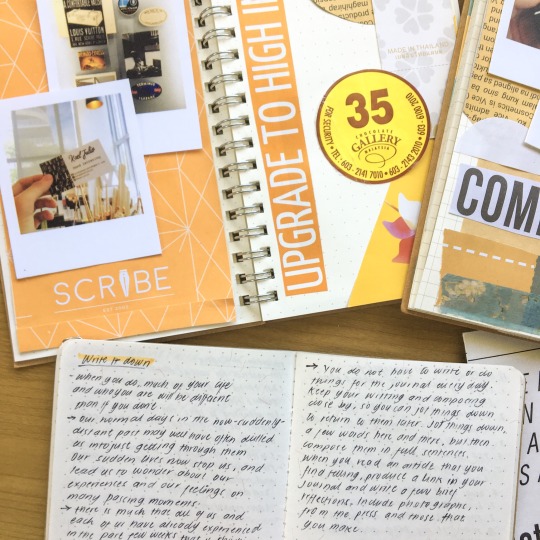 LOUIS VUITTON
SCRIBE
UPGRADE TO HIGH
MADE IN THAILAND
35
CHOCOLATE
GALLERY
MALAYSIA
FOR SECURITY • TEL: 603 - 2141 7010 • 603 - 2143 2010 •
COM
Write it down
- when you do, much of your life
and who you are will be different
than if you don't.
→ our normal days in the now-suddenly-
distant past may well have often dulled
us into just getting through them
Our sudden lives now stop us, and
lead us to wonder about our
experiences and our feelings on
many passing moments.
→ there is much that all of us and
each of us have already experienced
in the past few weeks that
→ You do not have to write or do
things for the journal everyday.
Keep your writing and
close by, so you can jot things down
to return to them later. Jot things down,
a few words here and there, but then
compose them in full sentences.
when you read an article that you
find telling, produce a link in your
Journal and write a few brief
reflections. Include photographs,
from the press and those that
you make.